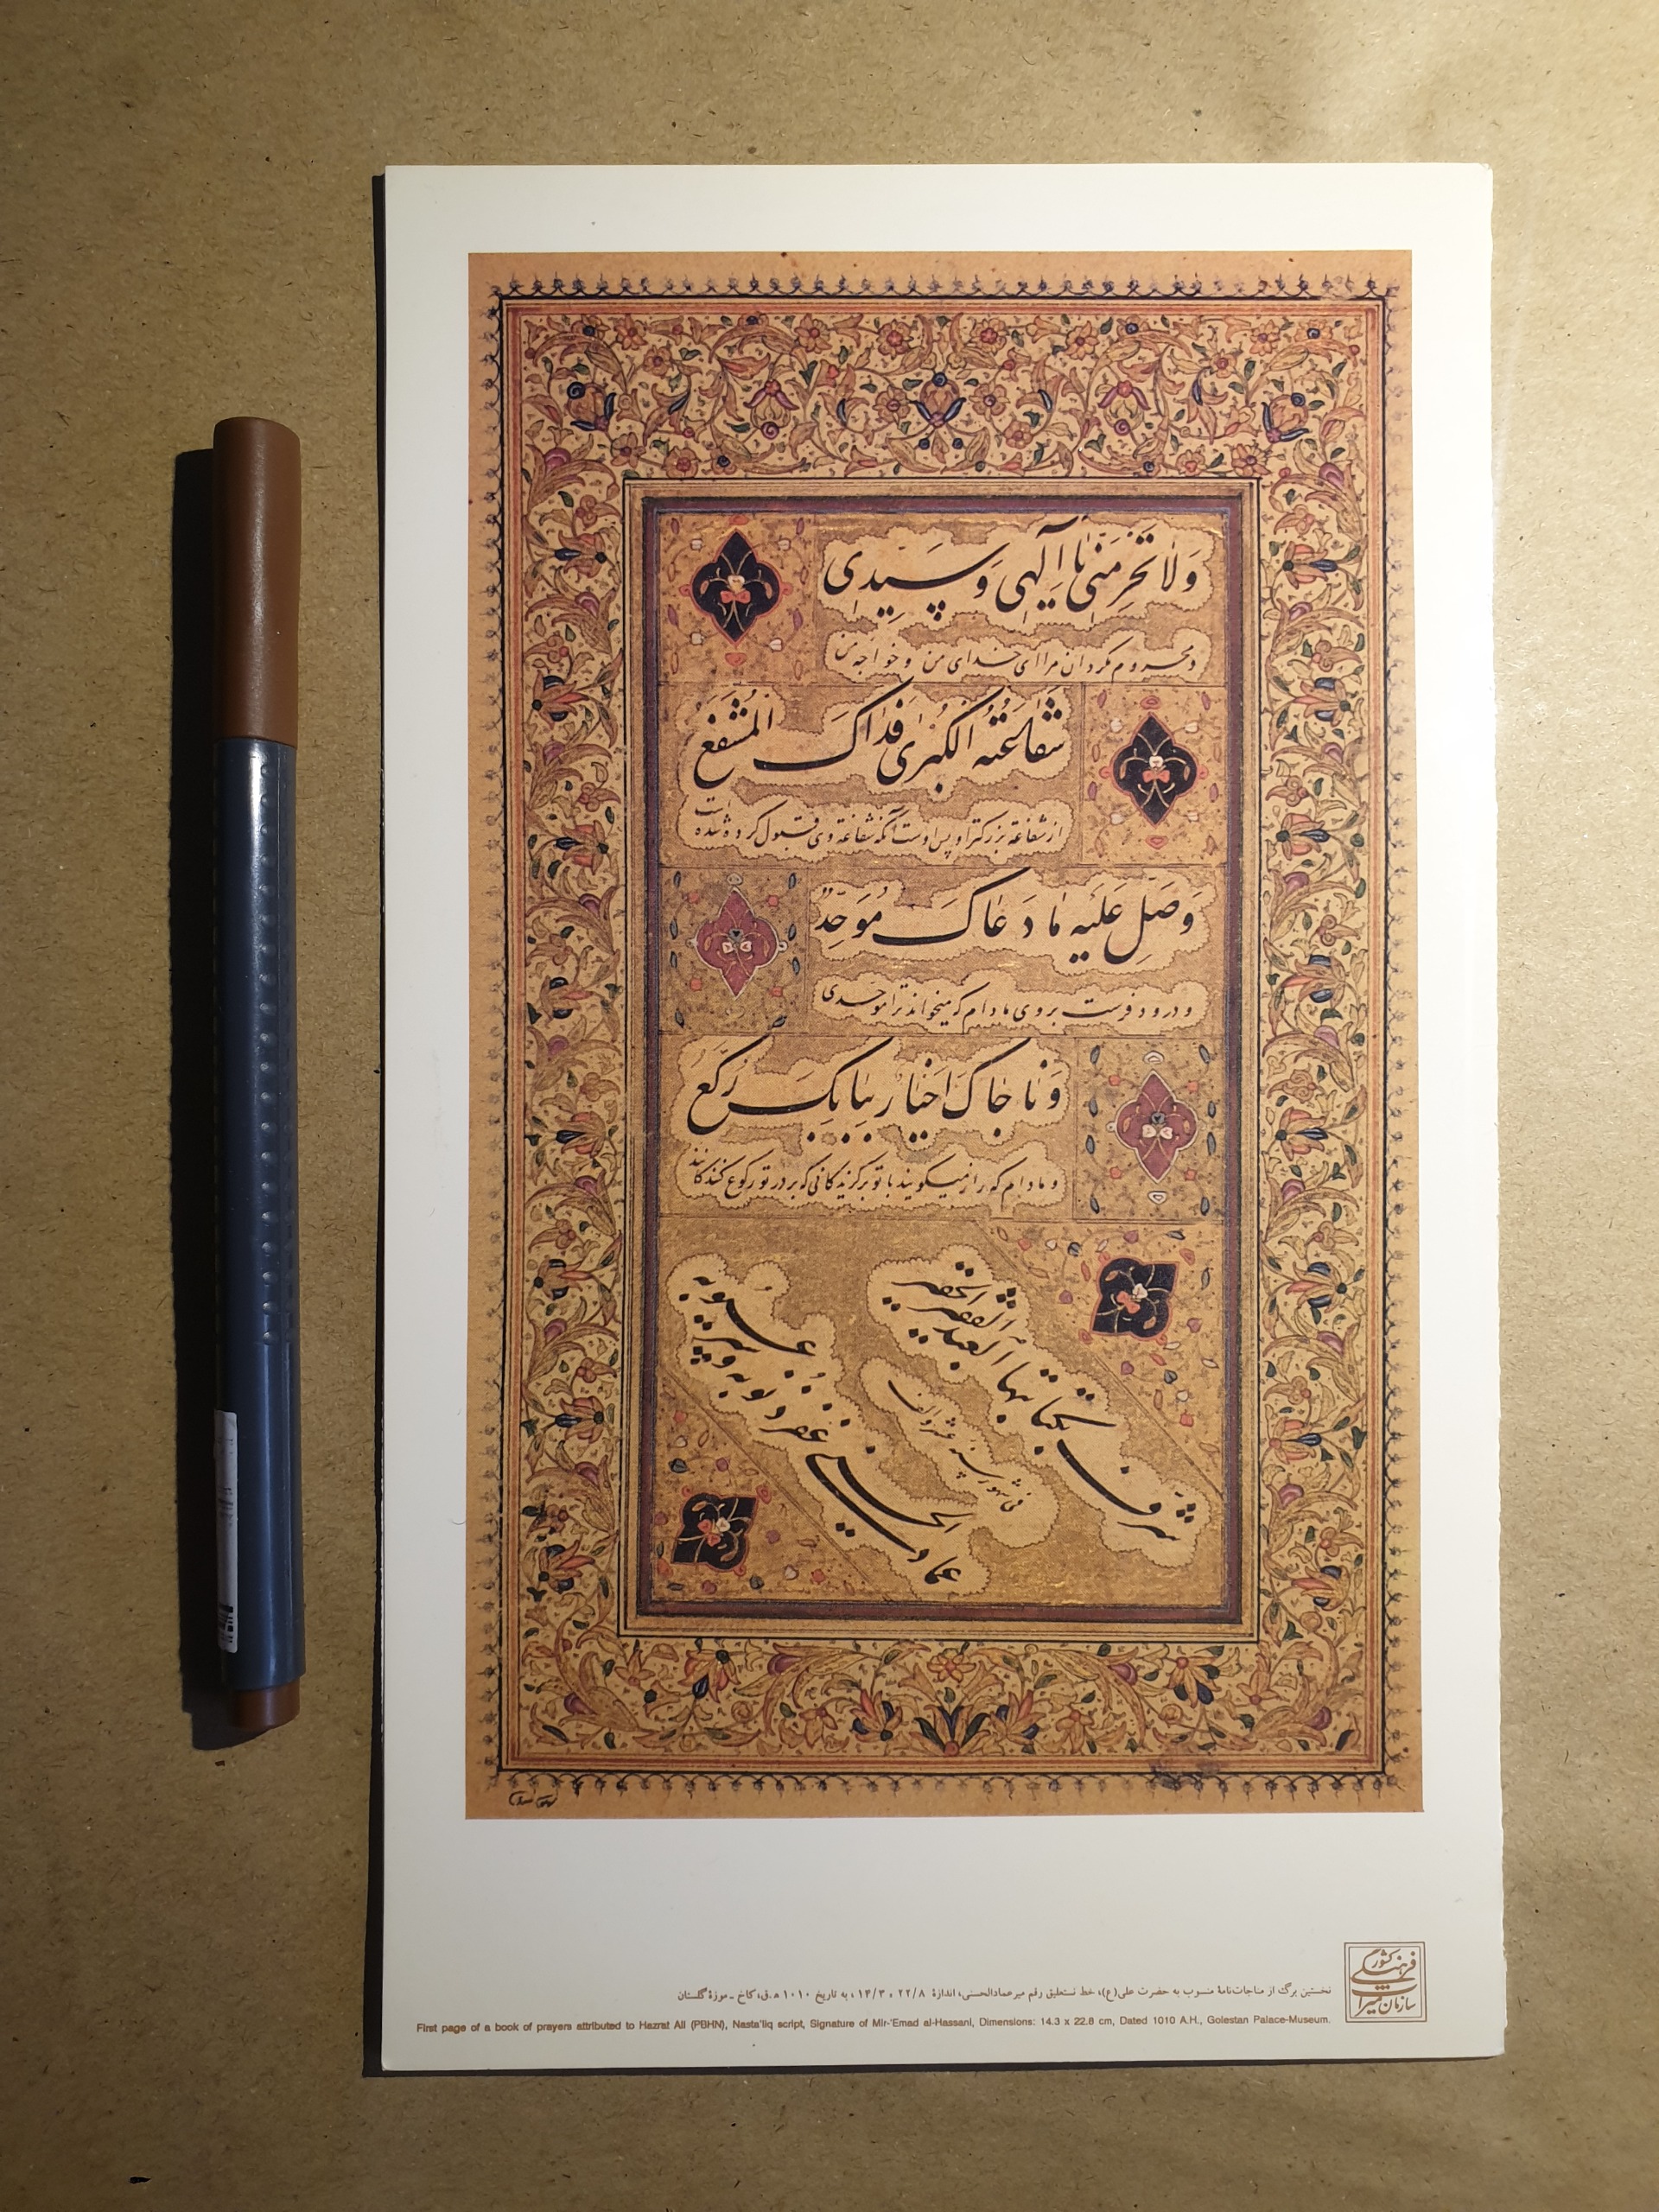 وَلا تَحْرِمَنّی یٰا اِلٰهی وَ سَیِّدی
و محروم مگردان مرا ای خدای من و خواجه من
شَفاعَتَهُ الکُبْریٰ فَذاکَ المُشَفَّعُ
از شفاعة بزرکتر او پس اوست آنکه شفاعة وی قبول کرده شده است
وَ صَلِّ عَلَیْهِ مٰا دَعٰاکَ مُوَحِّدٌ
و درود فرست بر وی مادام که میخواند ترا موحدی
وَ نٰاجٰاکَ اَخْیٰارٌ بِبٰابِکَ رُکَّعُ
و مادام که راز میکویند با تو برکزیدکانی که بر در تو رکوع کنندکانند
شرف بکتابتها العبد الفقیر الحقیر
عماد الحسنی غفر ذنوبه و ستر عیوبه
فی شهور سنه عشر و الف
نخستین برگ از مناجات‌نامهٔ منسوب به حضرت علی(ع)، خط نستعلیق رقم میرعمادالحسنی، اندازهٔ ۲۲/۸ × ۱۴/۳، به تاریخ ۱۰۱۰ ه‍.ق، کاخ ـ موزهٔ گلستان
First page of a book of prayers attributed to Hazrat Ali (PBHN), Nasta'liq script, Signature of Mir-'Emad al-Hassani, Dimensions: 14.3 x 22.8 cm, Dated 1010 A.H., Golestan Palace-Museum.
سازمان میراث فرهنگی کشور